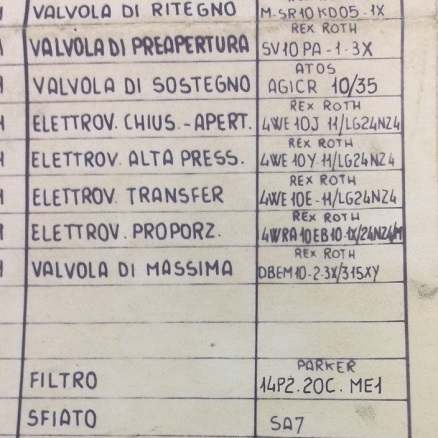 VALVOLA DI RITEGNO M-SR10 KD05-1X
REX ROTH
VALVOLA DI PREAPERTURA SV10 PA-1-3X
ATOS
VALVOLA DI SOSTEGNO AGICR 10/35
REX ROTH
ELETTROV. CHIUS.-APERT. 4WE 10J 11/LG24NZ4
REX ROTH
ELETTROV. ALTA PRESS. 4WE 10Y 11/LG24NZ4
REX ROTH
ELETTROV. TRANSFER 4WE 10E-11/LG24NZ4
REX ROTH
ELETTROV. PROPORZ. 4WRA10EB10-1X/24NZ4/M
REX ROTH
VALVOLA DI MASSIMA DBEM10-2-3X/315XY
PARKER
FILTRO 14P2.20C.ME1
SFIATO SA7